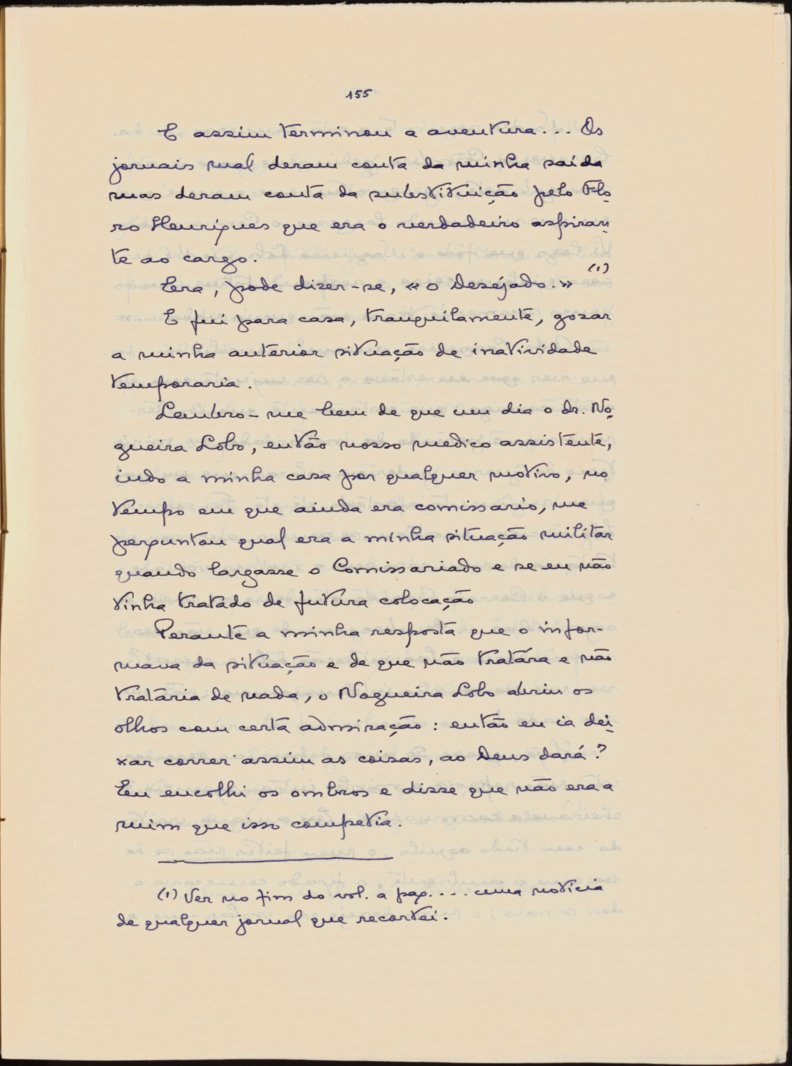 155
E assim terminou a aventura... Os
jornais mal deram conta da minha saída
mas deram conta da substituição pelo Flo-
ro Henriques que era o verdadeiro aspiran-
te ao cargo.
Era, pode dizer-se, «o Desejado.» (1)
E fui para casa, tranquilamente, gosar
a minha anterior situação de inatividade
temporaria.
Lembro-me bem de que um dia o dr. No-
gueira Lobo, então nosso medico assistente,
indo a minha casa por qualquer motivo, no
tempo em que ainda era comissario, me
perguntou qual era a minha situação militar
quando largasse o Comissariado e se eu não
tinha tratado de futura colocação
Perante a minha resposta que o infor-
mava da situação e de que não tratára e não
trataria de nada, o Nogueira Lobo abriu os
olhos com certa admiração: então eu ia dei-
xar correr assim as coisas, ao Deus dará?
Eu encolhi os ombros e disse que não era a
mim que isso competia.
(1) Ver no fim do vol. a pag. ... uma noticia
de qualquer jornal que recortei.